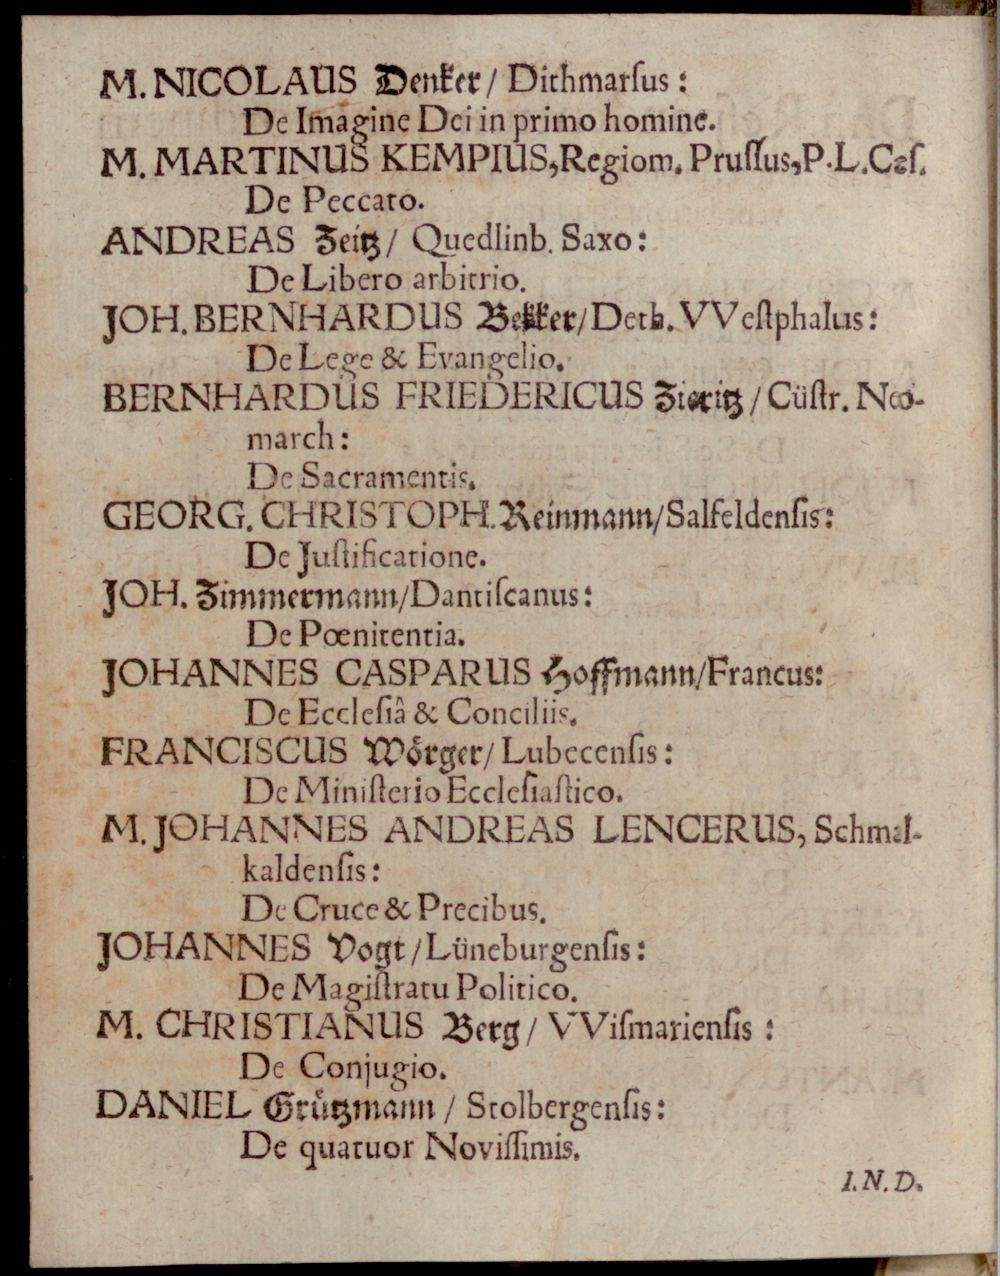 M. NICOLAUS Denker/ Dithmarſus:
De Imagine Dei in primo homine.
M. MARTINUS KEMPIUS, Regiom. Pruſſus, P. L. Cæſ.
De Peccato.
ANDREAS Zeitz/ Quedlinb. Saxo:
De Libero arbitrio.
JOH. BERNHARDUS Bekker/ Deth. VVeſtphalus:
De Lege & Evangelio.
BERNHARDUS FRIEDERICUS Zieritz/ Cüſtr. Neo-
march:
De Sacramentis.
GEORG. CHRISTOPH. Reinmann/ Salfeldenſis:
De Juſtificatione.
JOH. Zimmermann/ Dantiſcanus:
De Pœnitentia.
JOHANNES CASPARUS Hoffmann/ Francus:
De Eccleſiâ & Conciliis.
FRANCISCUS Woͤrger/ Lubecenſis:
De Miniſterio Eccleſiaſtico.
M. JOHANNES ANDREAS LENCERUS, Schmal-
kaldenſis:
De Cruce & Precibus.
JOHANNES Vogt/ Lüneburgenſis:
De Magiſtratu Politico.
M. CHRISTIANUS Berg/ VViſmarienſis:
De Conjugio.
DANIEL Gruͤtzmann/ Stolbergenſis:
De quatuor Noviſſimis.
I. N. D.